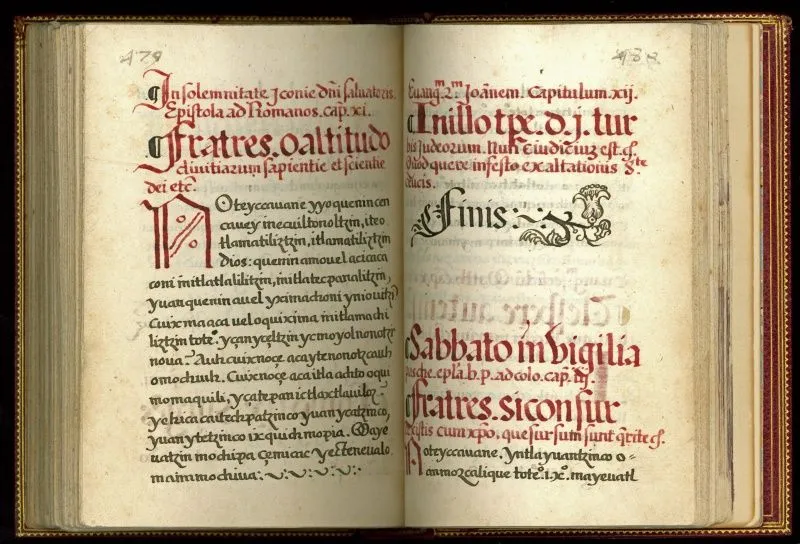 479
In solemnitate Iconie dñi saluatoris.
Epistola ad Romanos. cap. xi.
Fratres. O altitudo
diuitiarum sapientie et scientie
dei etc̃.
NOteyccauane yyoquenin cen
cauey inecuiltonoltzin, iteo
tlamatiliztzin, itlamatiliztzin
dios: quenin amo uel acicaca
coni in itlatlaliltzin, in itlatecpanaliltzin,
yuan quenin auel yximachoni yn iouitzĩ
Cuix ma aca uel oquiximã in itlamachi
liztzin toteº. yçan yçeltzin ycmoyolnonotz
noua. Auh cuix noçe aca ytenonotzcauh
omochiuh. Cuix noçe aca itla achto oqui
momaquili, yçatepan ictlaxtlauiloz.
yehica ca itechpatzinco yuan ycatzinco,
yuan ytetzinco ixquich mopia. Ma ye
uatzin mochipa çemicac yectenevalo
ma in mochiua:
Euangᵐ. 2ᵐ. Ioãnem. Capitulum. xij.
In illo tp̃e. d. j. tur
bis Iudeorum. Nũc iudiciuʒ est. cf.
Quod quere in festo exaltationis Sᵗᵉ
crucis.
Finis:
Sabbato in vigilia
pasche. epl̃a. b. p. ad colo. cap. iij.
Fratres. si con sur
rexistis cum xp̃o, que sursum sunt q̃rite cf.
Noteyccauane. Yntla yuantzinco o=
anmozcalique toteº. i. xº. ma yeuatl